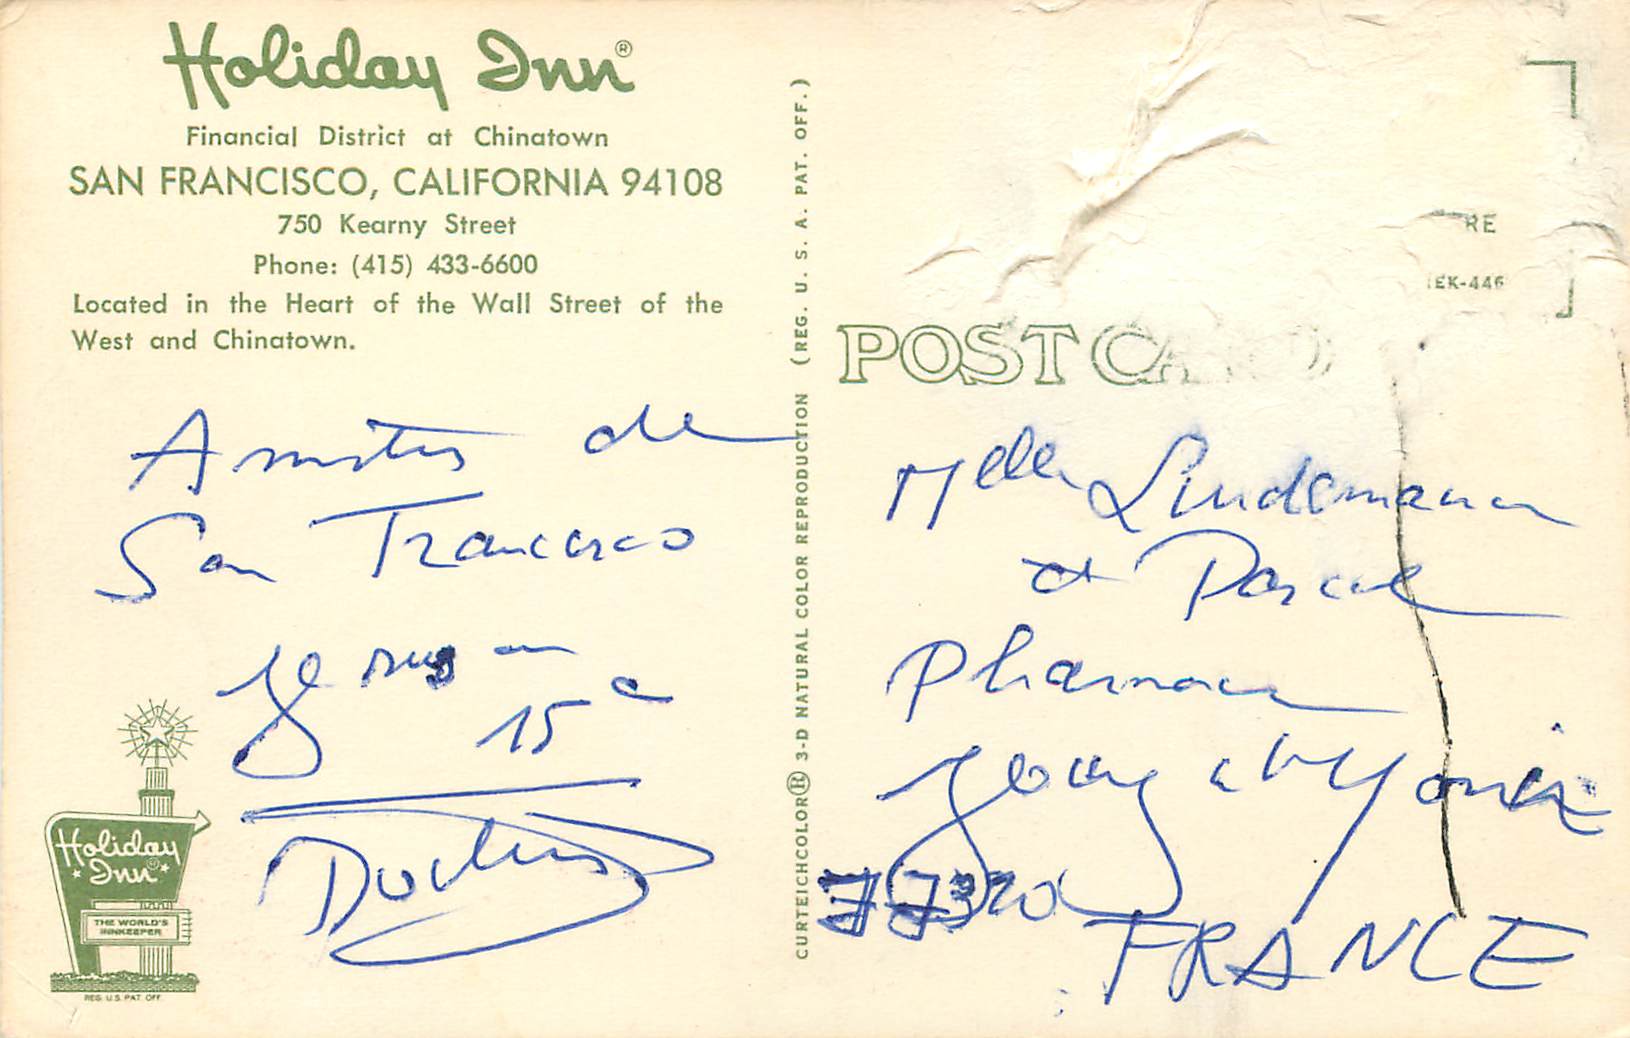 Holiday Inn®
Financial District at Chinatown
SAN FRANCISCO, CALIFORNIA 94108
750 Kearny Street
Phone: (415) 433-6600
Located in the Heart of the Wall Street of the
West and Chinatown.
Amitiés de
San Francisco
Je suis au
15e
Holiday
Inn®
THE WORLD'S
INNKEEPER
REG. U.S. PAT. OFF.
CURTEICHCOLOR® 3-D NATURAL COLOR REPRODUCTION (REG. U. S. A. PAT. OFF.)
RE
EK-446
POST CA
Melle Lindemann
et Pascale
Pharmacie
Jouy
77320
FRANCE